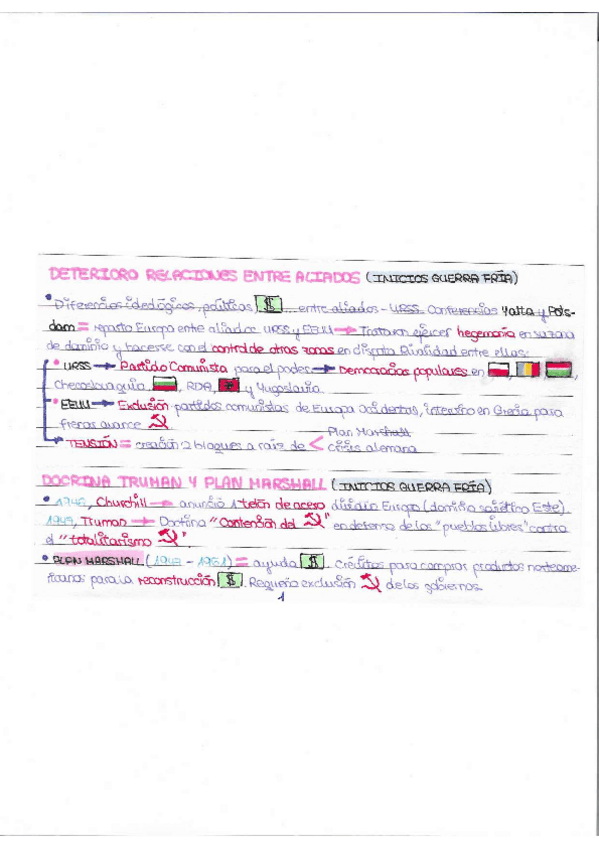 DETERIORO RELACIONES ENTRE ALIADOS (INICIOS GUERRA FRÍA)
• Diferencias ideológicas, políticas, $ entre aliados - URSS. Conferencias Yalta y Pots-
dam = reparto Europa entre aliados URSS y EEUU → Trataran ejercer hegemonía en su zona
de dominio y hacerse con el control de otras zonas en disputa. Rivalidad entre ellas:
• URSS → Partido Comunista para el poder → Democracias populares en , , ,
Checoslovaquia, , RDA, y Yugoslavia.
• EEUU → Exclusión partidos comunistas de Europa Occidental, intervino en Grecia para
frenar avance
Plan Marshall
• TENSIÓN = creación 2 bloques a raíz de < crisis alemana
DOCRINA TRUMAN Y PLAN MARSHALL (INICIOS GUERRA FRÍA)
• 1946, Churchill → anunció 1 telón de acero dividía Europa (dominio soviético Este)
Truman → Doctrina "Contención del " en defensa de los "pueblos libres" contra
el "totalitarismo ".
• PLAN MARSHALL ( ) = ayuda $. Créditos para comprar productos norteame-
ricanos para la reconstrucción $. Requería exclusión de los gobiernos.
1